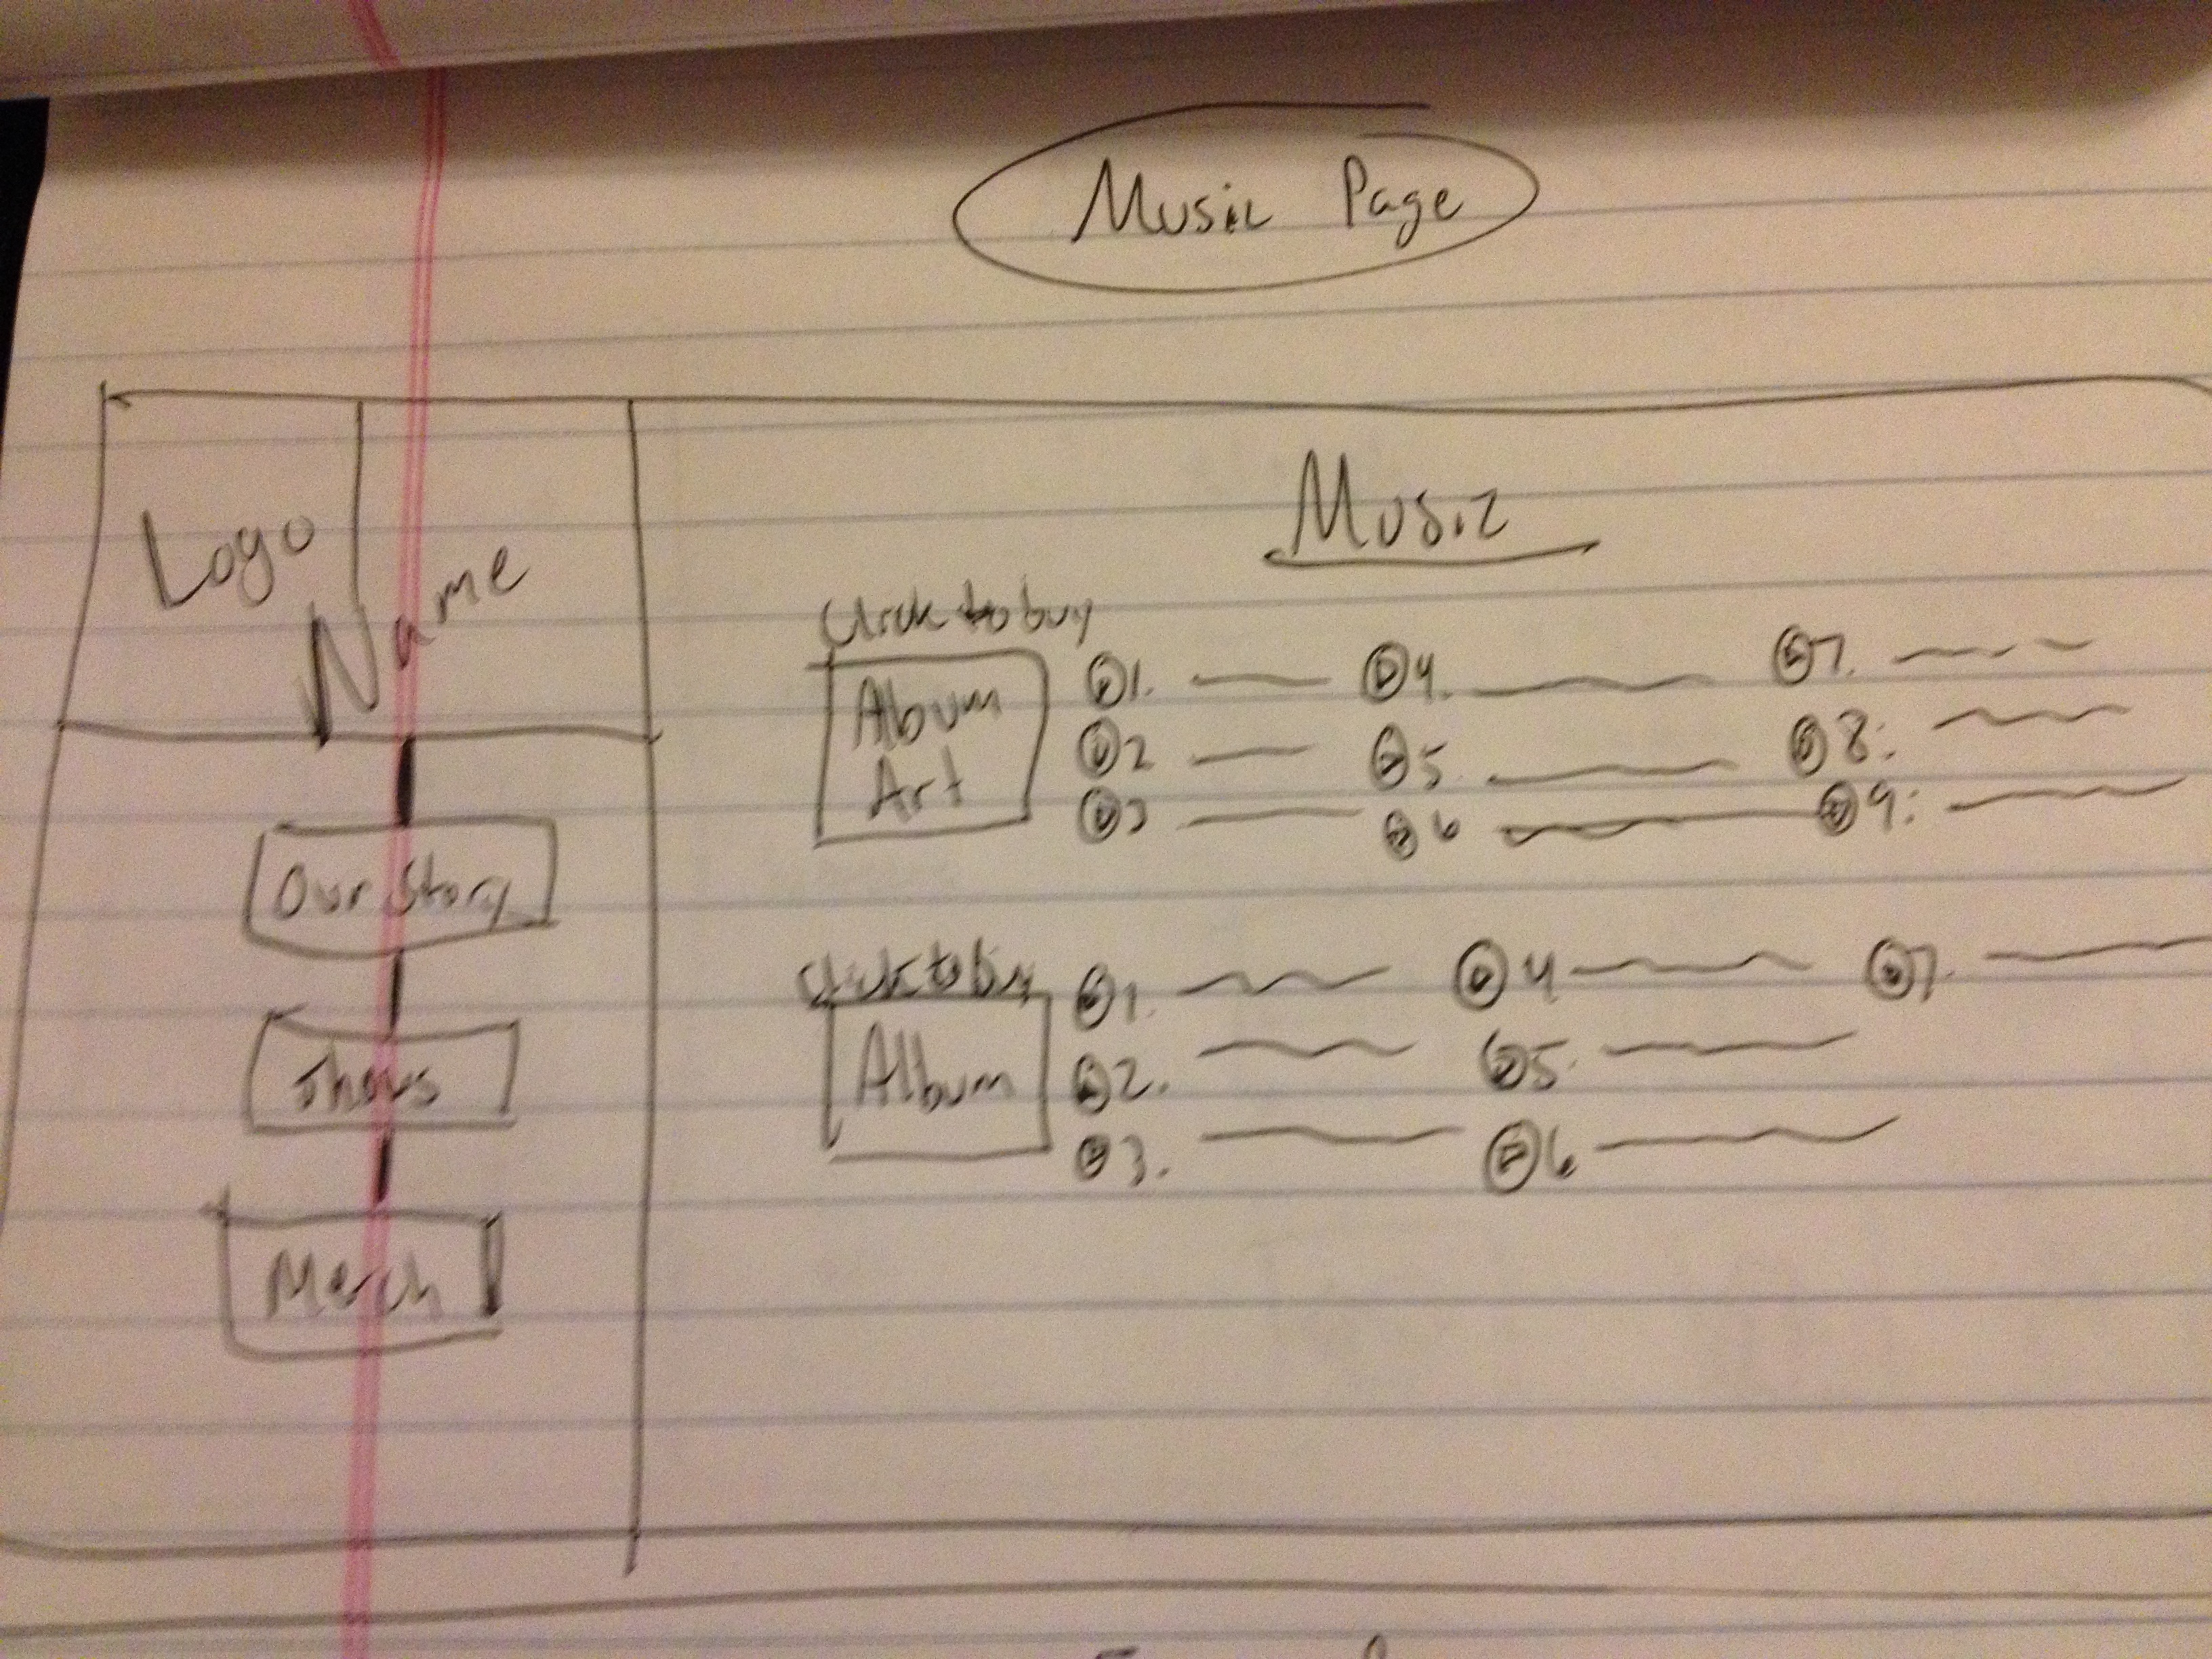 Music Page
Logo
Name
Our Story
Shows
Merch
Music
Click to buy
Album
Art
1. 4. 7.
2 5. 8.
3 6 9.
Click to buy
Album
1. 4 7.
2. 5.
3. 6